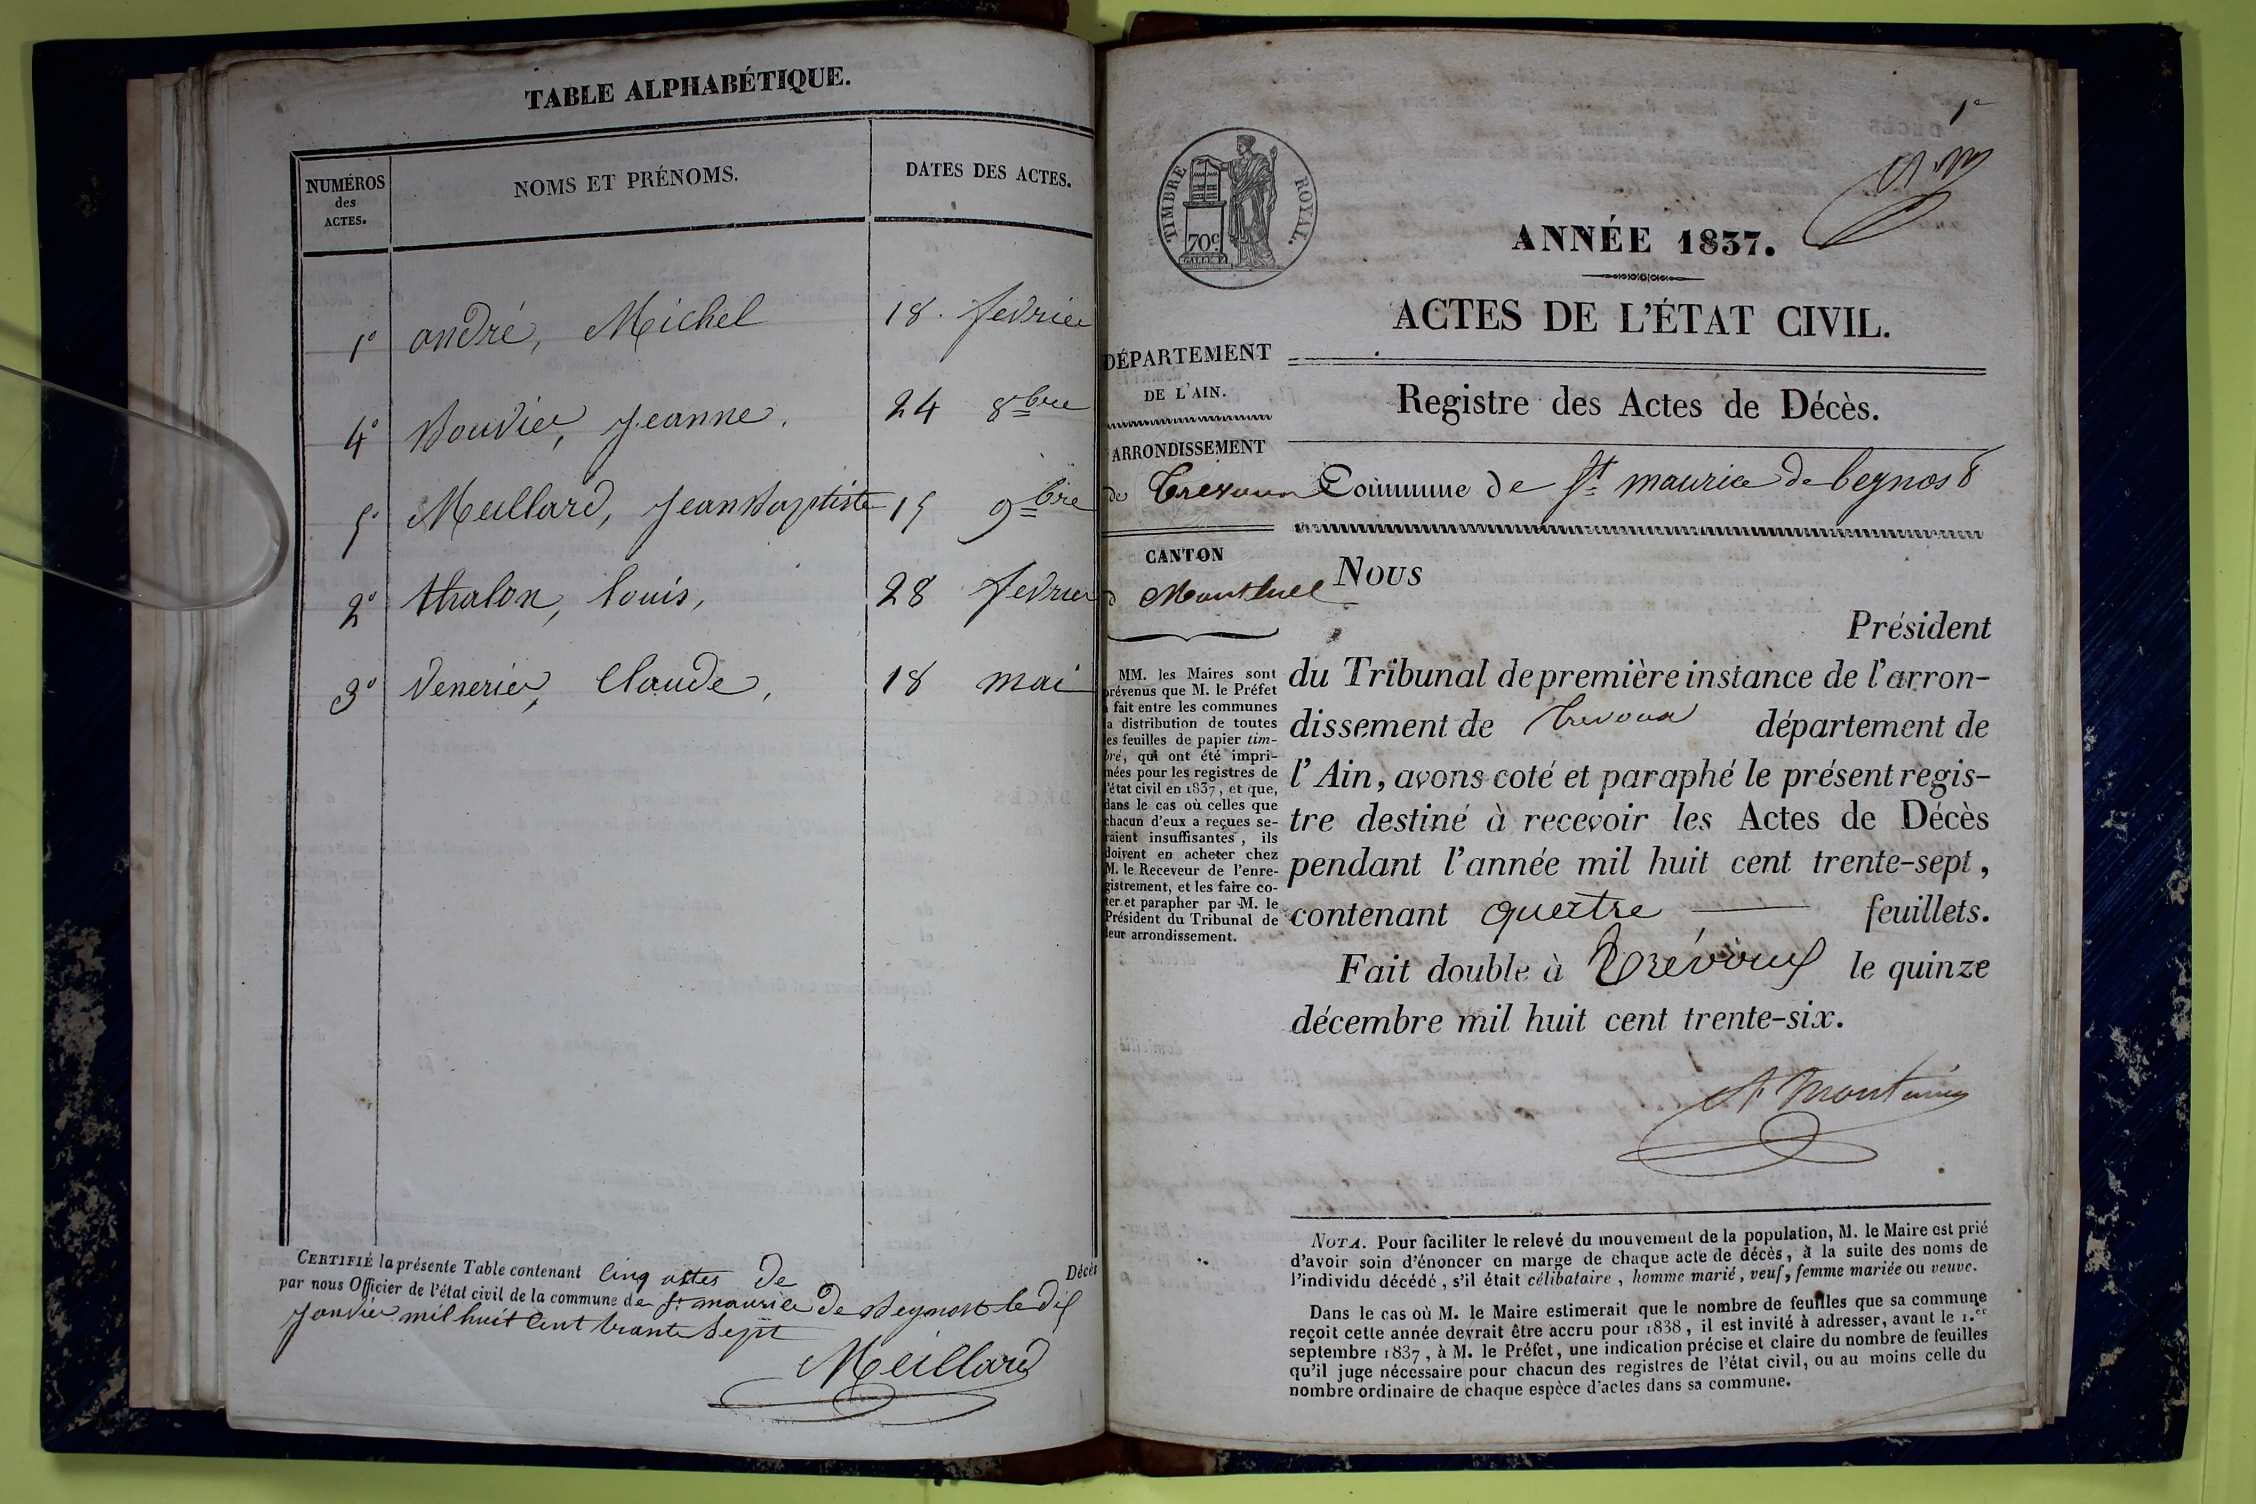 TABLE ALPHABÉTIQUE.
NUMÉROS
des
ACTES.
NOMS ET PRÉNOMS.
DATES DES ACTES.
1° andré, Michel 18. fevrier
4° Bouvier, jeanne. 24 8bre
5° Meillard, jean Baptiste 15 9bre
2° thalon, louis, 28 fevrier
3° Venerier, Claude, 18 mai
CERTIFIÉ la présente Table contenant cinq actes de Décès
par nous Officier de l'état civil de la commune de St maurice de Beynost le dix
janvier mil huit cent trante sept
Meillard
1e
TIMBRE ROYAL.
70c
ANNÉE 1837.
ACTES DE L'ÉTAT CIVIL.
DÉPARTEMENT
DE L'AIN.
Registre des Actes de Décès.
ARRONDISSEMENT
de Trevoux
Commune de St maurice de beynost
CANTON
d Montluel
MM. les Maires sont
prévenus que M. le Préfet
a fait entre les communes
la distribution de toutes
les feuilles de papier tim-
bré, qui ont été impri-
mées pour les registres de
l'état civil en 1837, et que,
dans le cas où celles que
chacun d'eux a reçues se-
raient insuffisantes, ils
doivent en acheter chez
M. le Receveur de l'enre-
gistrement, et les faire co-
ter et parapher par M. le
Président du Tribunal de
leur arrondissement.
Nous
Président
du Tribunal de première instance de l'arron-
dissement de Trevoux département de
l'Ain, avons coté et paraphé le présent regis-
tre destiné à recevoir les Actes de Décès
pendant l'année mil huit cent trente-sept,
contenant quatre feuillets.
Fait double à Trévoux le quinze
décembre mil huit cent trente-six.
NOTA. Pour faciliter le relevé du mouvement de la population, M. le Maire est prié
d'avoir soin d'énoncer en marge de chaque acte de décès, à la suite des noms de
l'individu décédé, s'il était célibataire, homme marié, veuf, femme mariée ou veuve.
Dans le cas où M. le Maire estimerait que le nombre de feuilles que sa commune
reçoit cette année devrait être accru pour 1838, il est invité à adresser, avant le 1.er
septembre 1837, à M. le Préfet, une indication précise et claire du nombre de feuilles
qu'il juge nécessaire pour chacun des registres de l'état civil, ou au moins celle du
nombre ordinaire de chaque espèce d'actes dans sa commune.